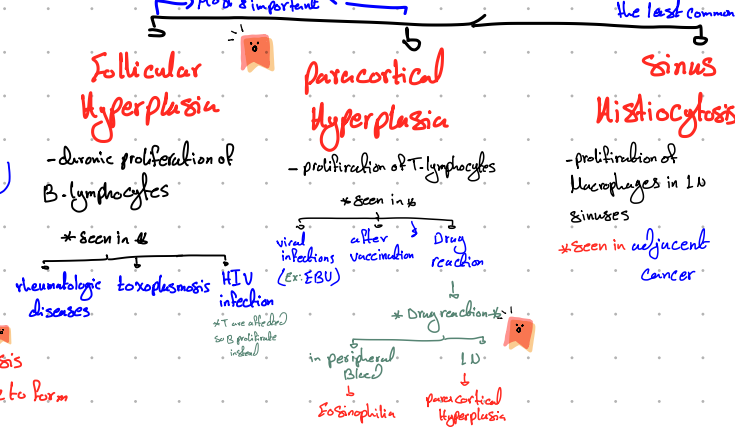 most important
the least common
Follicular
Hyperplasia
- chronic proliferation of
B-lymphocytes
* seen in
rheumatologic
diseases
toxoplasmosis
HIV
infection
* T are affected
so B proliferate
instead
Paracortical
Hyperplasia
- prolifiration of T-lymphocytes
* seen in
viral
infections
(Ex: EBV)
after
vaccination
Drug
reaction
* Drug reaction *
in peripheral
Blood
Eosinophilia
LN
paracortical
Hyperplasia
Sinus
Histiocytosis
- prolifiration of
Macrophages in LN
sinuses
* seen in adjucent
cancer
sis
e to form